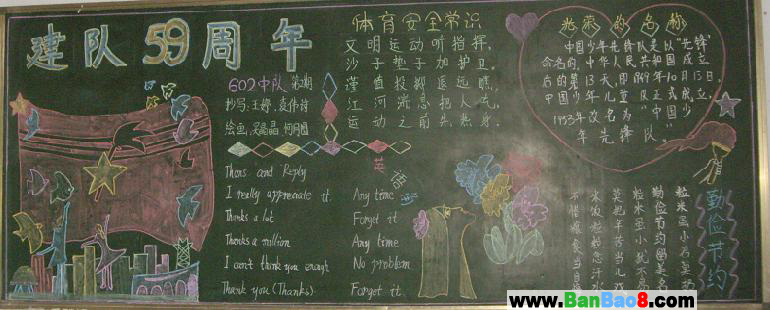 建队59周年
602中队 第2期
抄写:王婷、袁伟诗
绘画:吴晶晶 柯月圆
体育安全常识
文明运动听指挥,
沙子垫子加护卫。
谨值投掷
江河
运动之前先热身。
光荣的名称
中国少年先锋队是以"先锋"
命名的,中华人民共和国成立
后的第13天,即1949年10月13日,
中国少年儿童
1953年改名为"中国少
年先锋队"
英语
Thons and Reply
I really appreciate it. Any time
Thanks a lot Forget it
Thanks a million Any time
I can't thank you enough No problem
Thank you (Thanks). Forget it
勤俭节约
粒米虽小君莫扔
勤俭节约留美名
粒米虽小犹不易
莫把辛苦当儿戏
米饭粒粒念汗水
不惜粮食当自
www.BanBao8.com